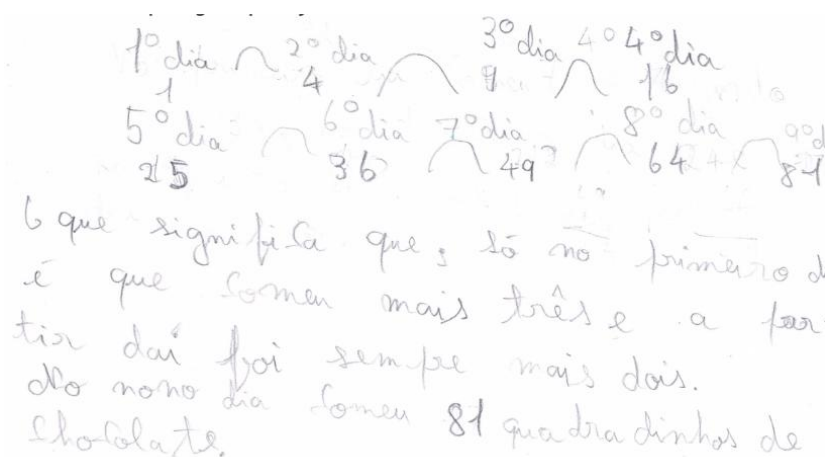 1º dia 2º dia 3º dia 4º 4º dia
1 4 9 16
5º dia 6º dia 7º dia 8º dia 9º d
25 36 49 64 81
o que significa que, só no primeiro d
é que comeu mais três e a par
tir daí foi sempre mais dois.
No nono dia comeu 81 quadradinhos de
chocolate.